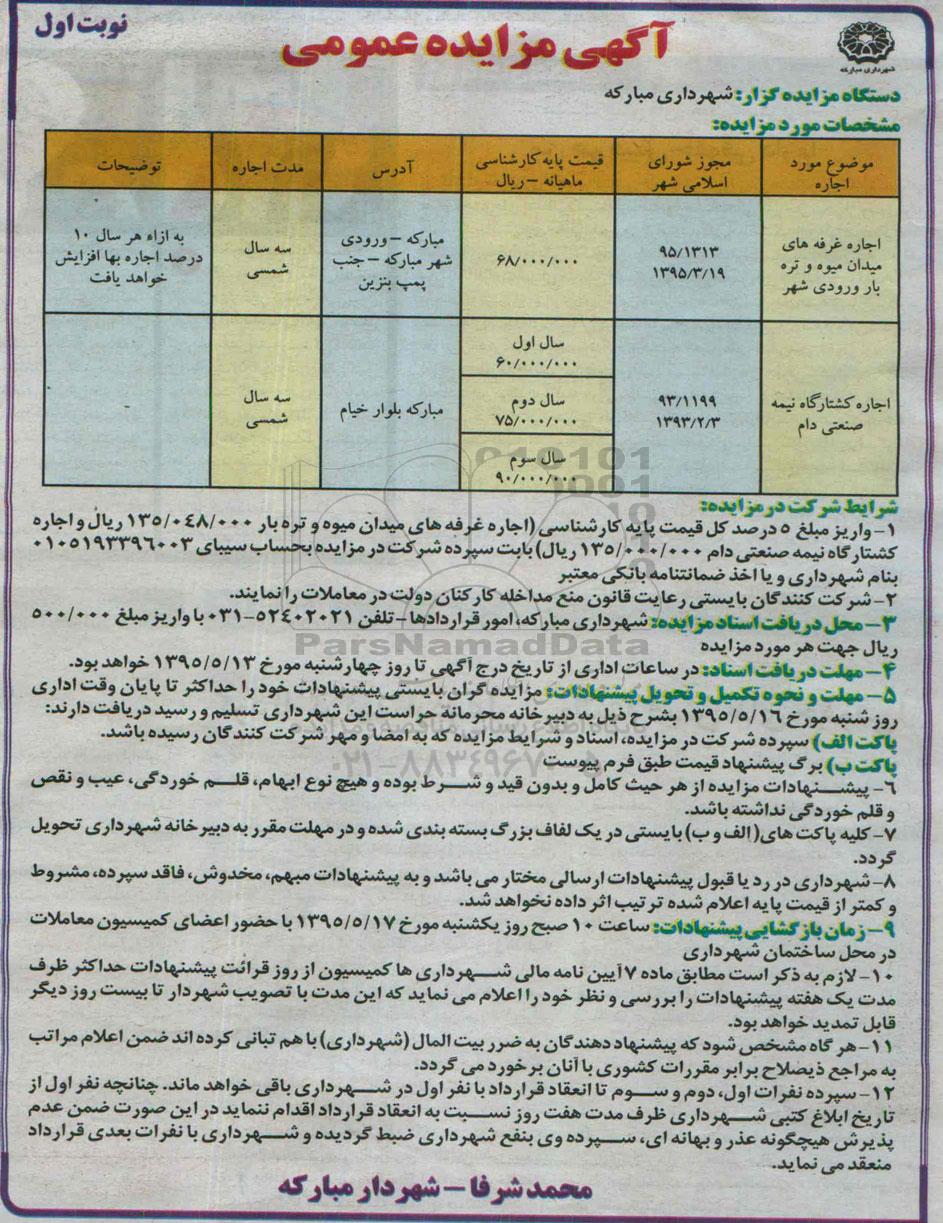 نوبت اول
آگهی مزایده عمومی
شهرداری مبارکه
دستگاه مزایده گزار: شهرداری مبارکه
مشخصات مورد مزایده:
موضوع مورد اجاره
مجوز شورای اسلامی شهر
قیمت پایه کارشناسی ماهیانه – ریال
آدرس
مدت اجاره
توضیحات
اجاره غرفه های
میدان میوه و تره
بار ورودی شهر
۹۵/۱۳۱۳
۱۳۹۵/۳/۱۹
۶۸/۰۰۰/۰۰۰
مبارکه – ورودی
شهر مبارکه – جنب
پمپ بنزین
سه سال
شمسی
به ازاء هر سال ۱۰
درصد اجاره بها افزایش
خواهد یافت
اجاره کشتارگاه نیمه
صنعتی دام
۹۳/۱۱۹۹
۱۳۹۳/۲/۳
سال اول
۶۰/۰۰۰/۰۰۰
سال دوم
۷۵/۰۰۰/۰۰۰
سال سوم
۹۰/۰۰۰/۰۰۰
مبارکه بلوار خیام
سه سال
شمسی
-
شرایط شرکت در مزایده:
۱- واریز مبلغ ۵ درصد کل قیمت پایه کارشناسی (اجاره غرفه های میدان میوه و تره بار ۱۳۵/۰۴۸/۰۰۰ ریال و اجاره
کشتارگاه نیمه صنعتی دام ۱۳۵/۰۰۰/۰۰۰ ریال) بابت سپرده شرکت در مزایده بحساب سیبای ۰۱۰۵۱۹۳۳۹۶۰۰۳
بنام شهرداری و یا اخذ ضمانتنامه بانکی معتبر
۲- شرکت کنندگان بایستی رعایت قانون منع مداخله کارکنان دولت در معاملات را نمایند.
۳- محل دریافت اسناد مزایده: شهرداری مبارکه، امور قراردادها – تلفن ۵۲۴۰۲۰۲۱-۰۳۱ با واریز مبلغ ۵۰۰/۰۰۰
ریال جهت هر مورد مزایده
ParsNamadData
۴- مهلت دریافت اسناد: در ساعات اداری از تاریخ درج آگهی تا روز چهارشنبه مورخ ۱۳۹۵/۵/۱۳ خواهد بود.
۵- مهلت و نحوه تکمیل و تحویل پیشنهادات: مزایده گران بایستی پیشنهادات خود را حداکثر تا پایان وقت اداری
روز شنبه مورخ ۱۳۹۵/۵/۱۶ بشرح ذیل به دبیرخانه محرمانه حراست این شهرداری تسلیم و رسید دریافت دارند:
پاکت الف) سپرده شرکت در مزایده، اسناد و شرایط مزایده که به امضا و مهر شرکت کنندگان رسیده باشد.
پاکت ب) برگ پیشنهاد قیمت طبق فرم پیوست
۰۲۱-۸۸۳۴۹۶۷
۶- پیشنهادات مزایده از هر حیث کامل و بدون قید و شرط بوده و هیچ نوع ابهام، قلم خوردگی، عیب و نقص
و قلم خوردگی نداشته باشد.
۷- کلیه پاکت های (الف و ب) بایستی در یک لفاف بزرگ بسته بندی شده و در مهلت مقرر به دبیرخانه شهرداری تحویل
گردد.
۸- شهرداری در رد یا قبول پیشنهادات ارسالی مختار می باشد و به پیشنهادات مبهم، مخدوش، فاقد سپرده، مشروط
و کمتر از قیمت پایه اعلام شده ترتیب اثر داده نخواهد شد.
۹- زمان بازگشایی پیشنهادات: ساعت ۱۰ صبح روز یکشنبه مورخ ۱۳۹۵/۵/۱۷ با حضور اعضای کمیسیون معاملات
در محل ساختمان شهرداری
۱۰- لازم به ذکر است مطابق ماده ۷ آیین نامه مالی شهرداری ها کمیسیون از روز قرائت پیشنهادات حداکثر ظرف
مدت یک هفته پیشنهادات را بررسی و نظر خود را اعلام می نماید که این مدت با تصویب شهردار تا بیست روز دیگر
قابل تمدید خواهد بود.
۱۱- هر گاه مشخص شود که پیشنهاد دهندگان به ضرر بیت المال (شهرداری) با هم تبانی کرده اند ضمن اعلام مراتب
به مراجع ذیصلاح برابر مقررات کشوری با آنان برخورد می گردد.
۱۲- سپرده نفرات اول، دوم و سوم تا انعقاد قرارداد با نفر اول در شهرداری باقی خواهد ماند. چنانچه نفر اول از
تاریخ ابلاغ کتبی شهرداری ظرف مدت هفت روز نسبت به انعقاد قرارداد اقدام ننماید در این صورت ضمن عدم
پذیرش هیچگونه عذر و بهانه ای، سپرده وی بنفع شهرداری ضبط گردیده و شهرداری با نفرات بعدی قرارداد
منعقد می نماید.
محمد شرفا – شهردار مبارکه